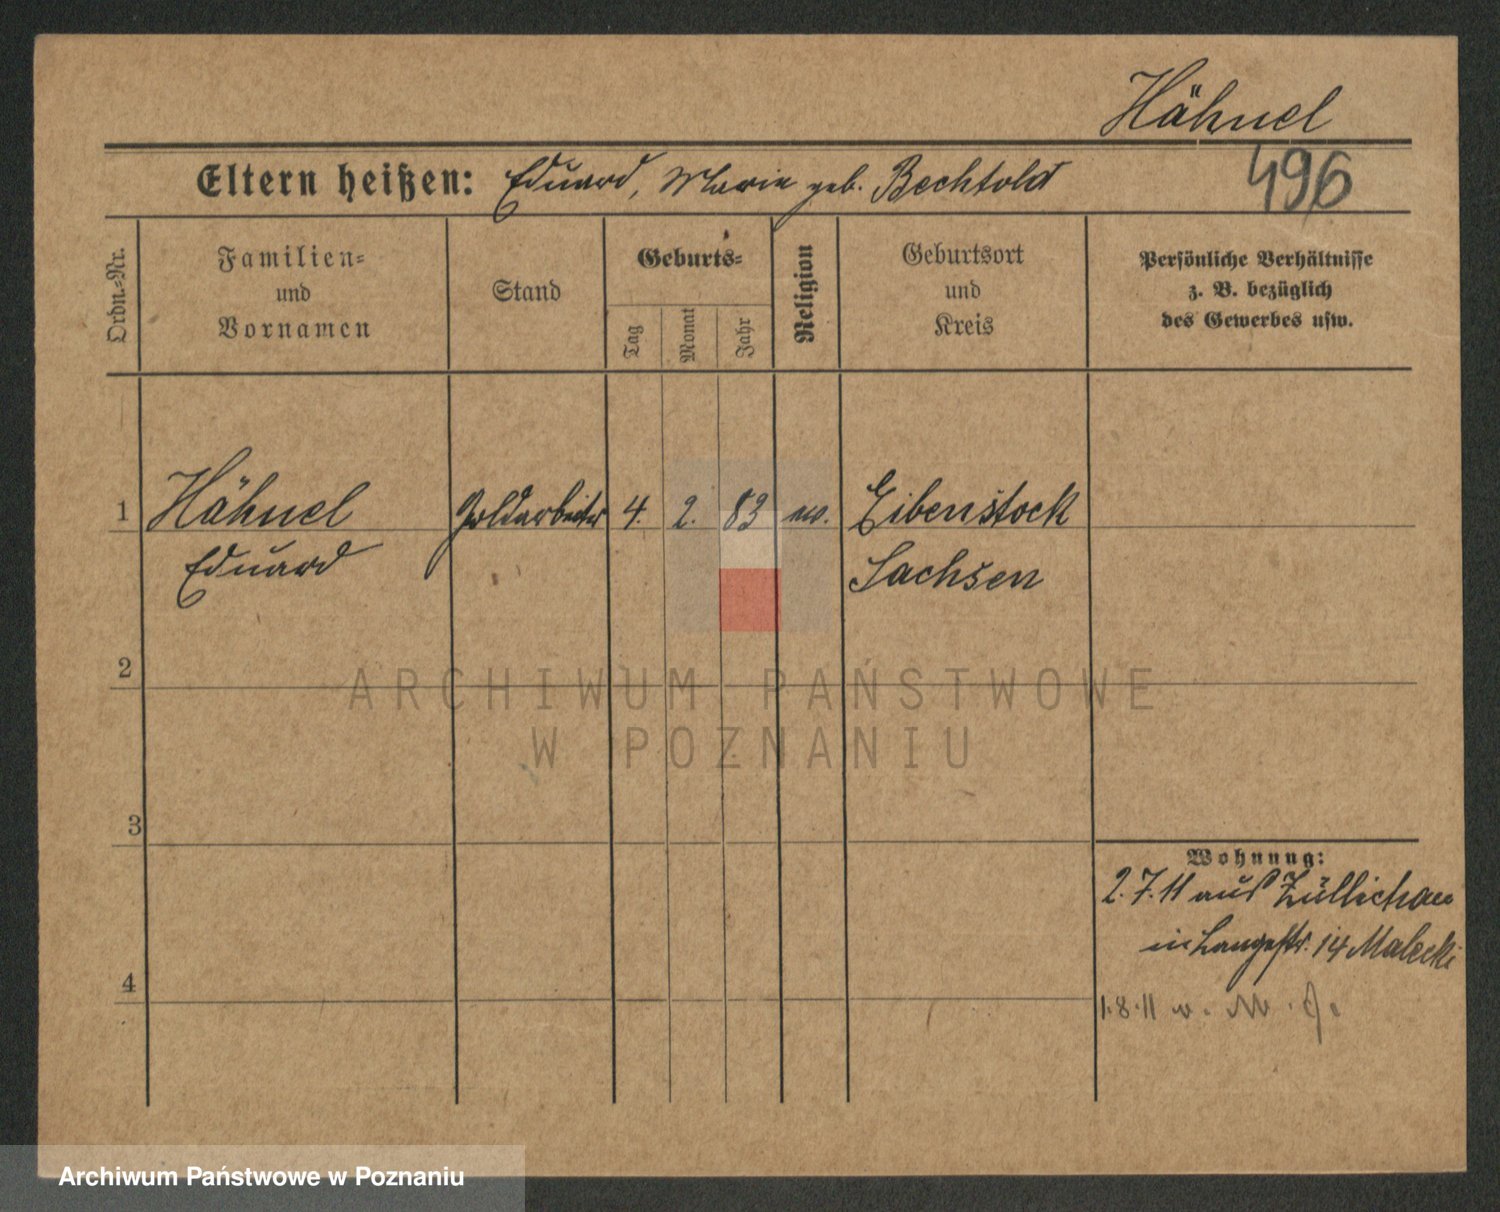 Hähnel
496
Eltern heißen: Eduard, Marie geb. Bechtold
Ordn.-Nr.
Familien-
und
Vornamen
Stand
Geburts-
Tag
Monat
Jahr
Religion
Geburtsort
und
Kreis
Persönliche Verhältnisse
z. B. bezüglich
des Gewerbes usw.
1 Hähnel Goldarbeiter 4. 2. 83 ev. Eibenstock
Eduard Sachsen
2
ARCHIWUM PAŃSTWOWE
W POZNANIU
3
Wohnung:
2.7.11 aus Züllichau
in Langestr. 14 Malecki
4
1.8.11 v. M.
Archiwum Państwowe w Poznaniu